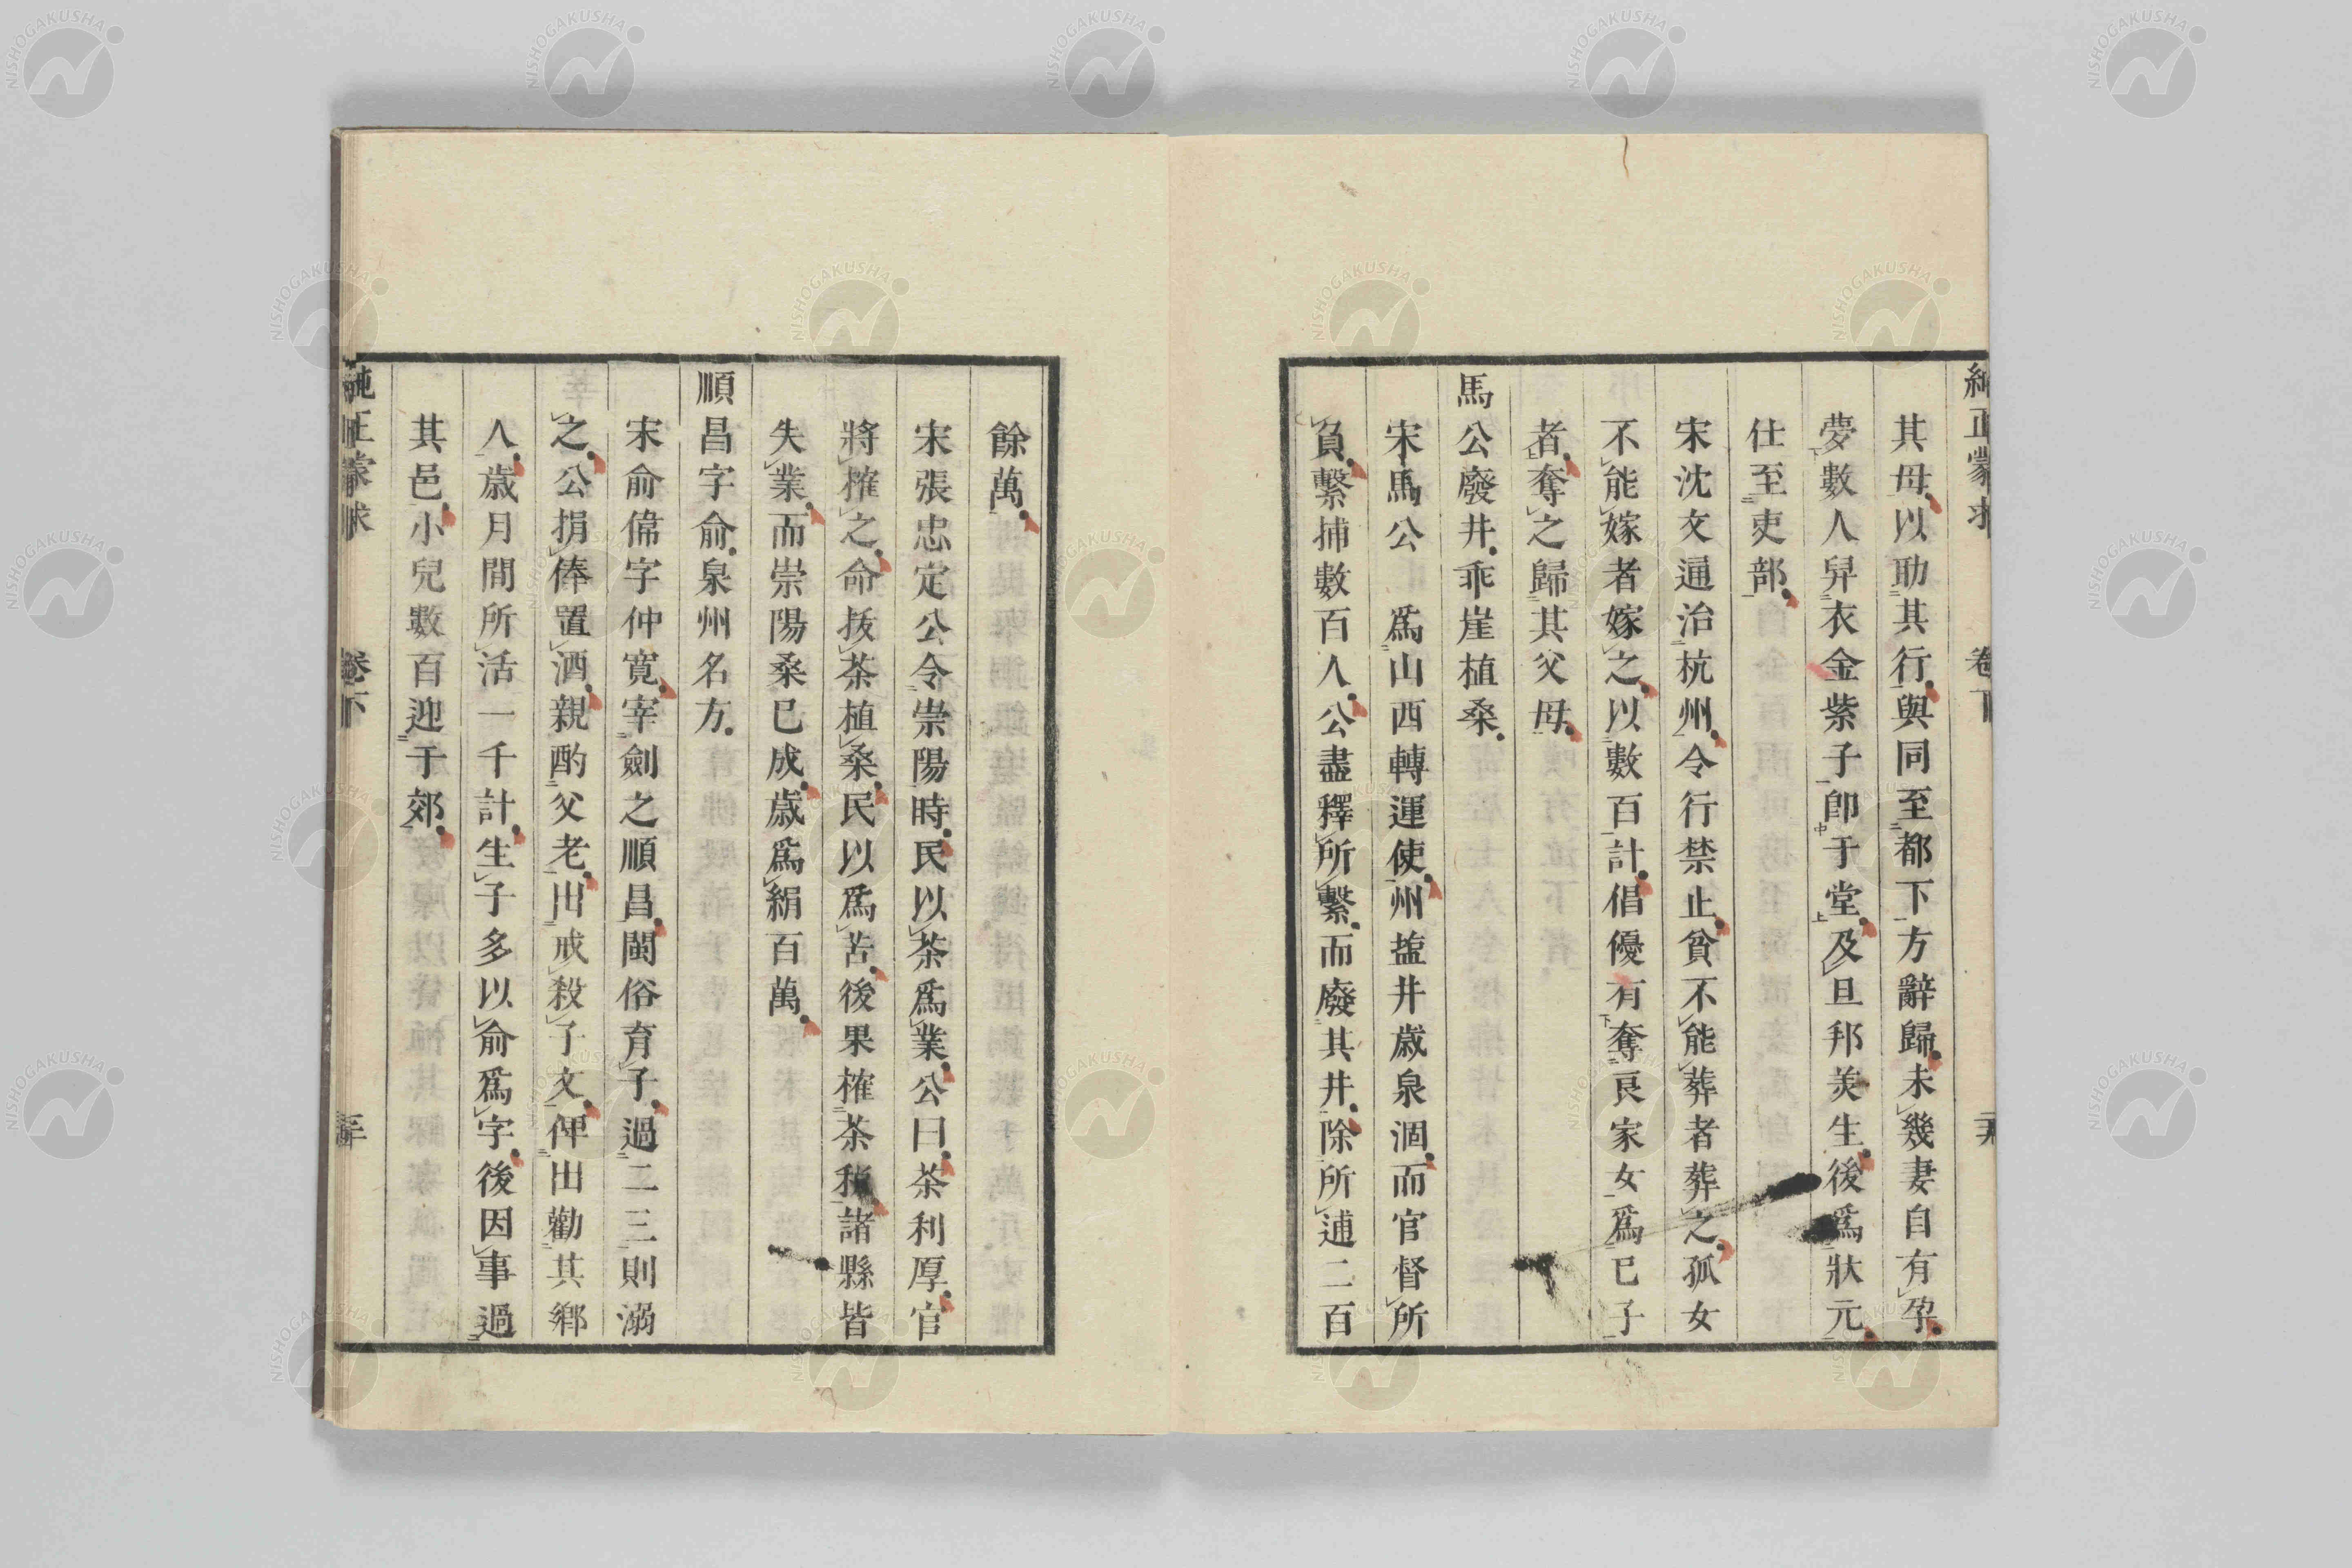 純正蒙求 卷下
其母以助其行與同至都下方辭歸未幾妻自有孕
夢數人舁衣金紫子卽于堂及旦邦美生後爲狀元
仕至吏部
宋沈文通治杭州令行禁止貧不能葬者葬之孤女
不能嫁者嫁之以數百計倡優有奪良家女爲已子
者奪之歸其父母
馬公廢井乖崖植桑
宋馬公 爲山西轉運使州塩井歲泉涸而官督所
負繫捕數百人公盡釋所繫而廢其井除所逋二百
餘萬
宋張忠定公令崇陽時民以茶爲業公曰茶利厚官
將榷之命拔茶植桑民以爲苦後果榷茶稅諸縣皆
失業而崇陽桑已成歲爲絹百萬
順昌字俞泉州名方
宋俞偉字仲寬宰劍之順昌閩俗育子過二三則溺
之公捐俸置酒親酌父老出戒殺子文俾出勸其鄉
人歲月間所活一千計生子多以俞爲字後因事過
其邑小兒數百迎于郊
純正蒙求 卷下
NISHOGAKUSHA